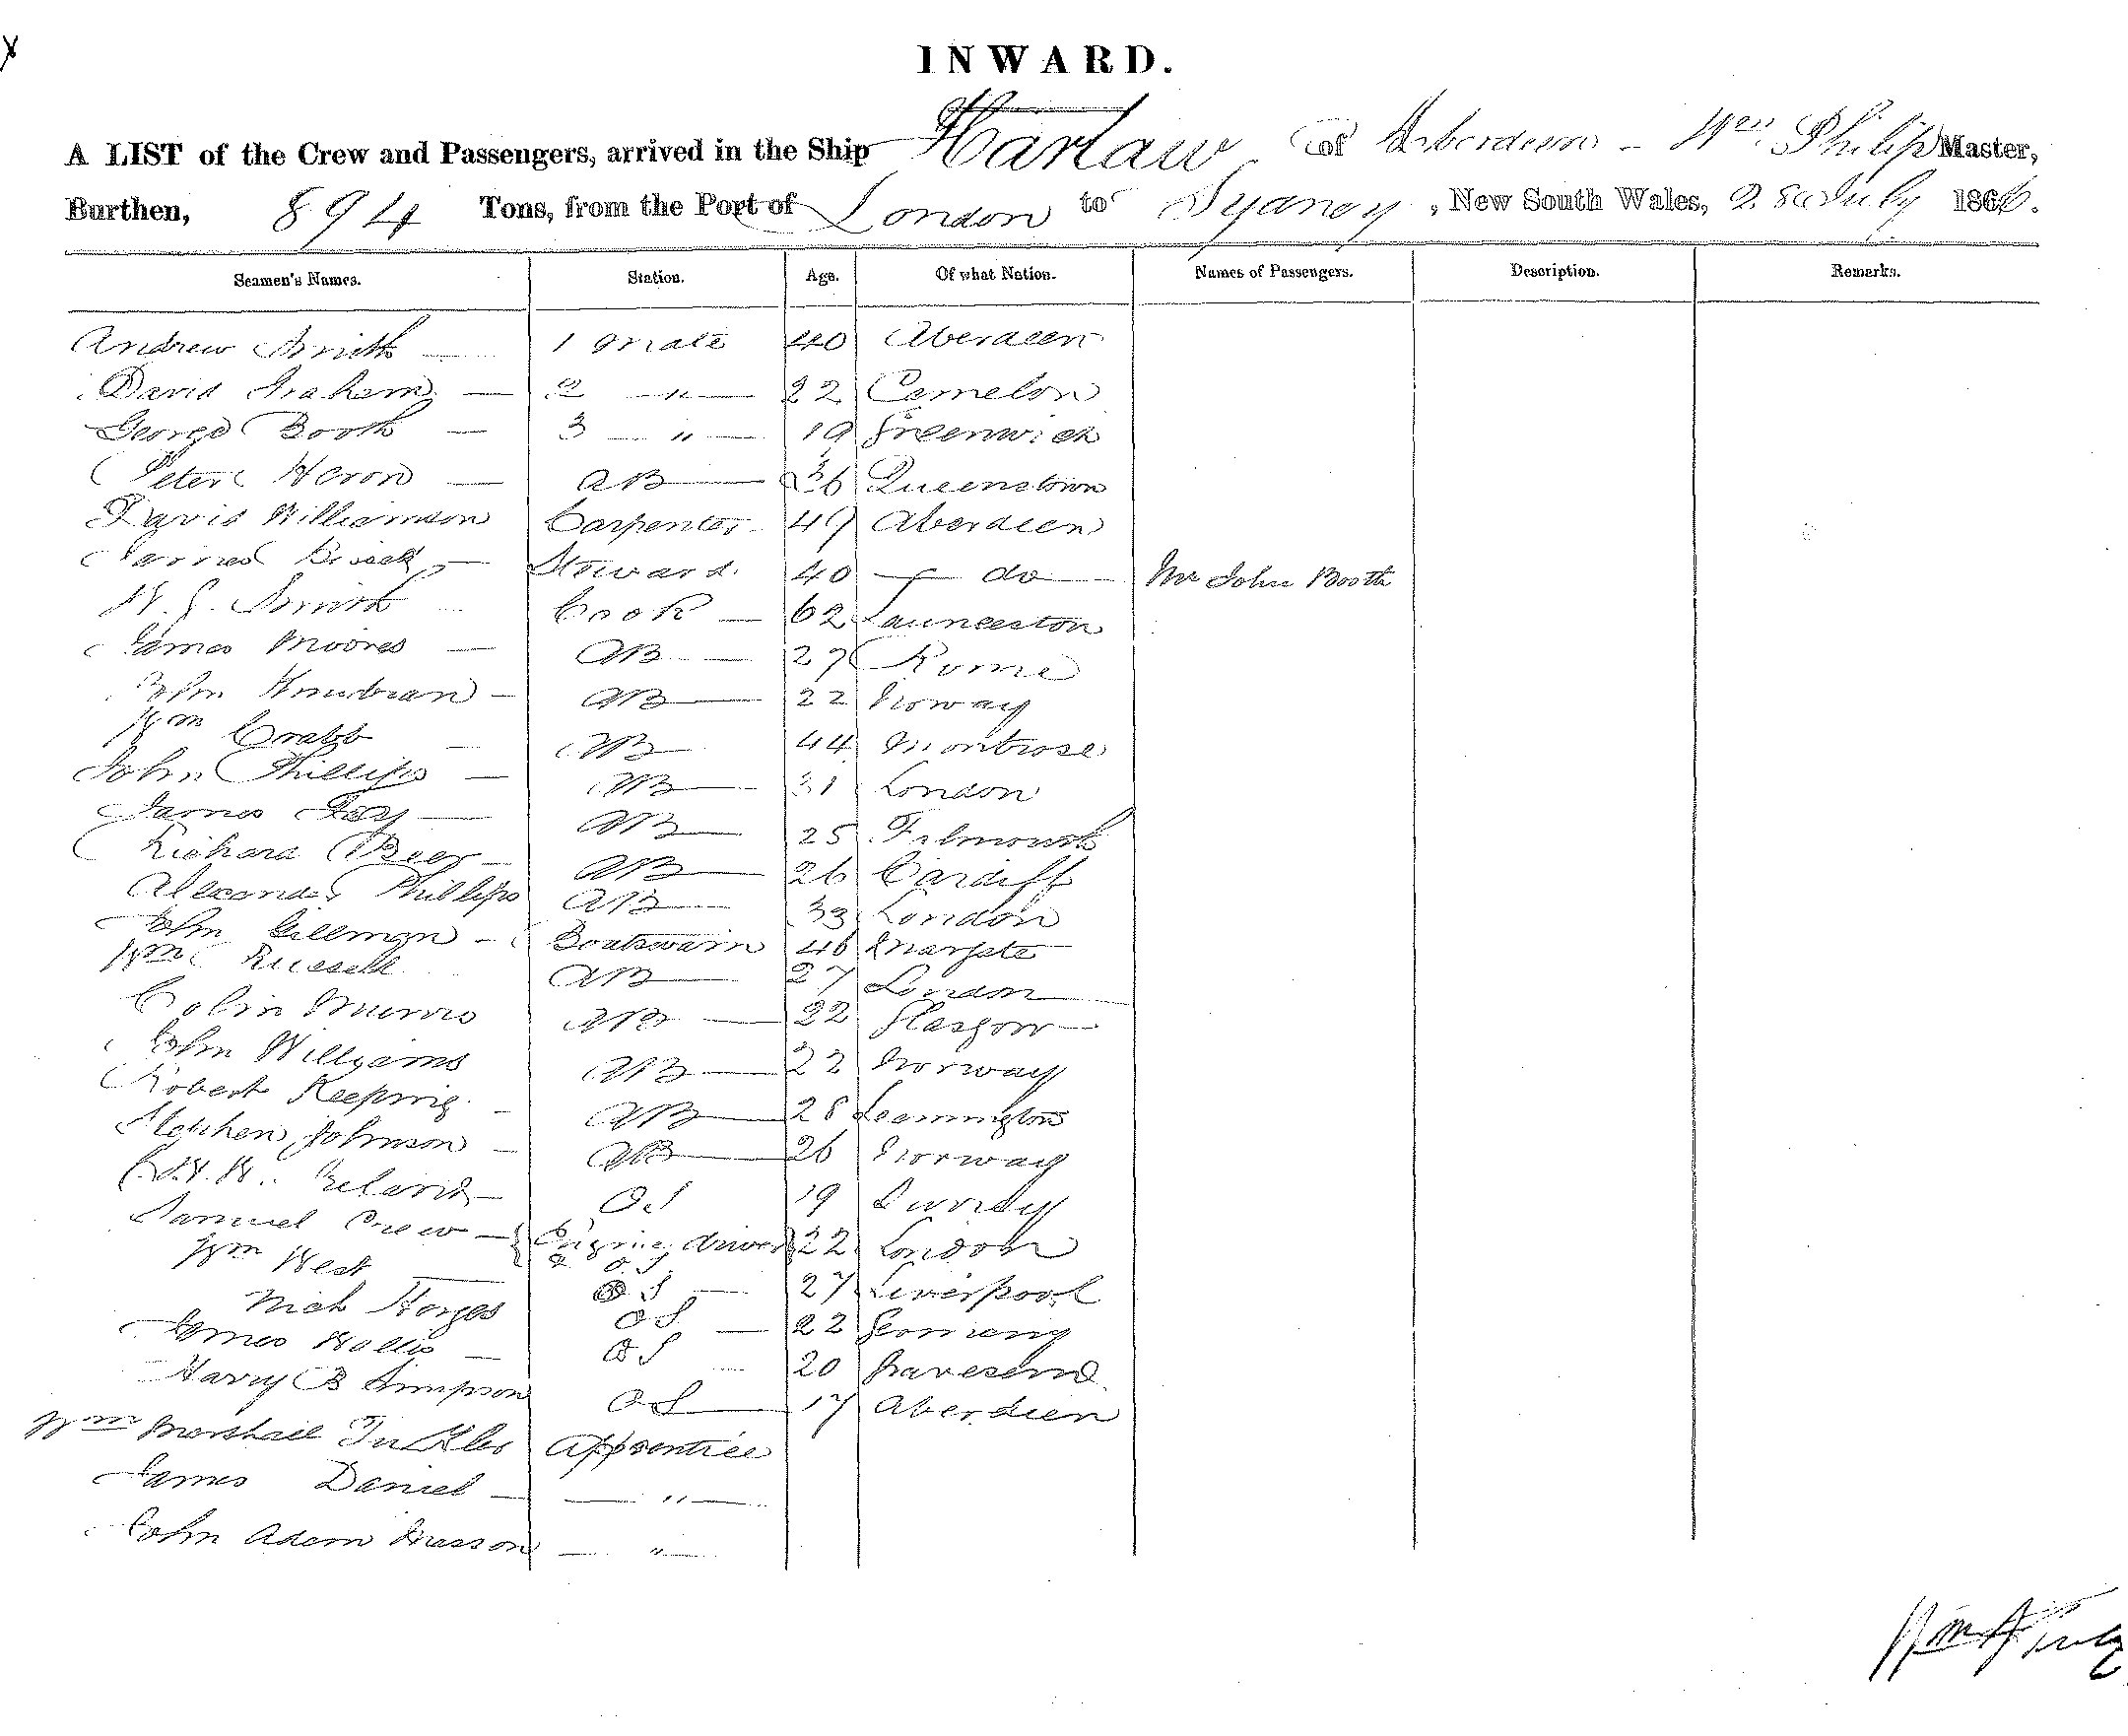 INWARD.
A LIST of the Crew and Passengers, arrived in the Ship Harlaw of Aberdeen - Wm Philip Master,
Burthen, 894 Tons, from the Port of London to Sydney, New South Wales, July 1866.
Seamen's Names. Station. Age. Of what Nation. Names of Passengers. Description. Remarks.
Andrew Smith 1 Mate 40 Aberdeen
David Graham 2 " 22 Camelon
George Booth 3 " 19 Greenwich
Peter Heron AB 36 Queenstown
David Williamson Carpenter 49 Aberdeen
James Steward 40 do Mr John Booth
W. J. Smith Cook 62 Launceston
James Moores AB 27 Rome
John AB 22 Norway
Wm Crabb AB 44 Montrose
John Phillips AB 31 London
James AB 25 Falmouth
Richard Beer AB 26 Cardiff
Alexander Phillips AB 33 London
John Gillman Boatswain 46 Margate
Wm Russell AB 27 London
Colin Munro AB 22 Glasgow
John Willyams AB 22 Norway
Robert Keeping AB 28 Leamington
Stephen Johnson AB 26 Norway
Ireland OS 19 Dundy
Samuel Crew { Engine driver & O.S 22 London
Wm West OS 27 Liverpool
Nich OS 22 Germany
James Hollis OS 20 Gravesend
Harry B Simpson OS 17 Aberdeen
Wm Marshall Apprentice
James Daniel "
John Adam Masson "